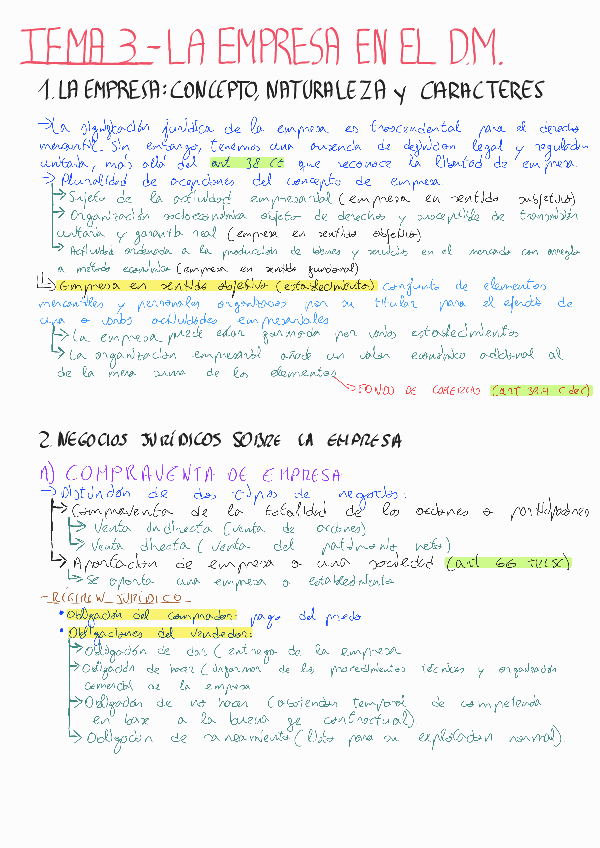 TEMA 3 - LA EMPRESA EN EL D.M.
1. LA EMPRESA: CONCEPTO, NATURALEZA y CARACTERES
→ La significación jurídica de la empresa es trascendental para el derecho
mercantil. Sin embargo, tenemos una ausencia de definición legal y regulación
unitaria, más allá del art 38 CE que reconoce la libertad de empresa.
→ Pluralidad de acepciones del concepto de empresa
→ Sujeto de la actividad empresarial (empresa en sentido subjetivo)
→ Organización socioeconómica objeto de derechos y susceptible de transmisión
unitaria y garantía real (empresa en sentido objetivo)
→ Actividad ordenada a la producción de bienes y servicios en el mercado con arreglo
a método económico (empresa en sentido funcional)
→ Empresa en sentido objetivo (establecimiento) conjunto de elementos
mercantiles y personales organizados por su titular para el ejercicio de
una o varias actividades empresariales
→ La empresa puede estar formada por varios establecimientos
→ La organización empresarial añade un valor económico adicional al
de la mera suma de los elementos
→ FONDO DE COMERCIO (art 39.4 C de c)
2. NEGOCIOS JURÍDICOS SOBRE LA EMPRESA
A) COMPRAVENTA DE EMPRESA
→ Distinción de dos tipos de negocios:
→ Compraventa de la totalidad de las acciones o participaciones
→ Venta indirecta (venta de acciones)
→ Venta directa (venta del patrimonio neto)
→ Aportación de empresa a una sociedad (art 66 TRLSC)
→ Se aporta una empresa o establecimiento
- RÉGIMEN JURÍDICO -
• Obligación del comprador: pago del precio
• Obligaciones del vendedor:
→ Obligación de dar (entrega de la empresa
→ Obligación de hacer (informar de los procedimientos técnicos y organización
comercial de la empresa
→ Obligación de no hacer (abstención temporal de competencia
en base a la buena fe contractual)
→ Obligación de saneamiento (listo para su explotación normal).